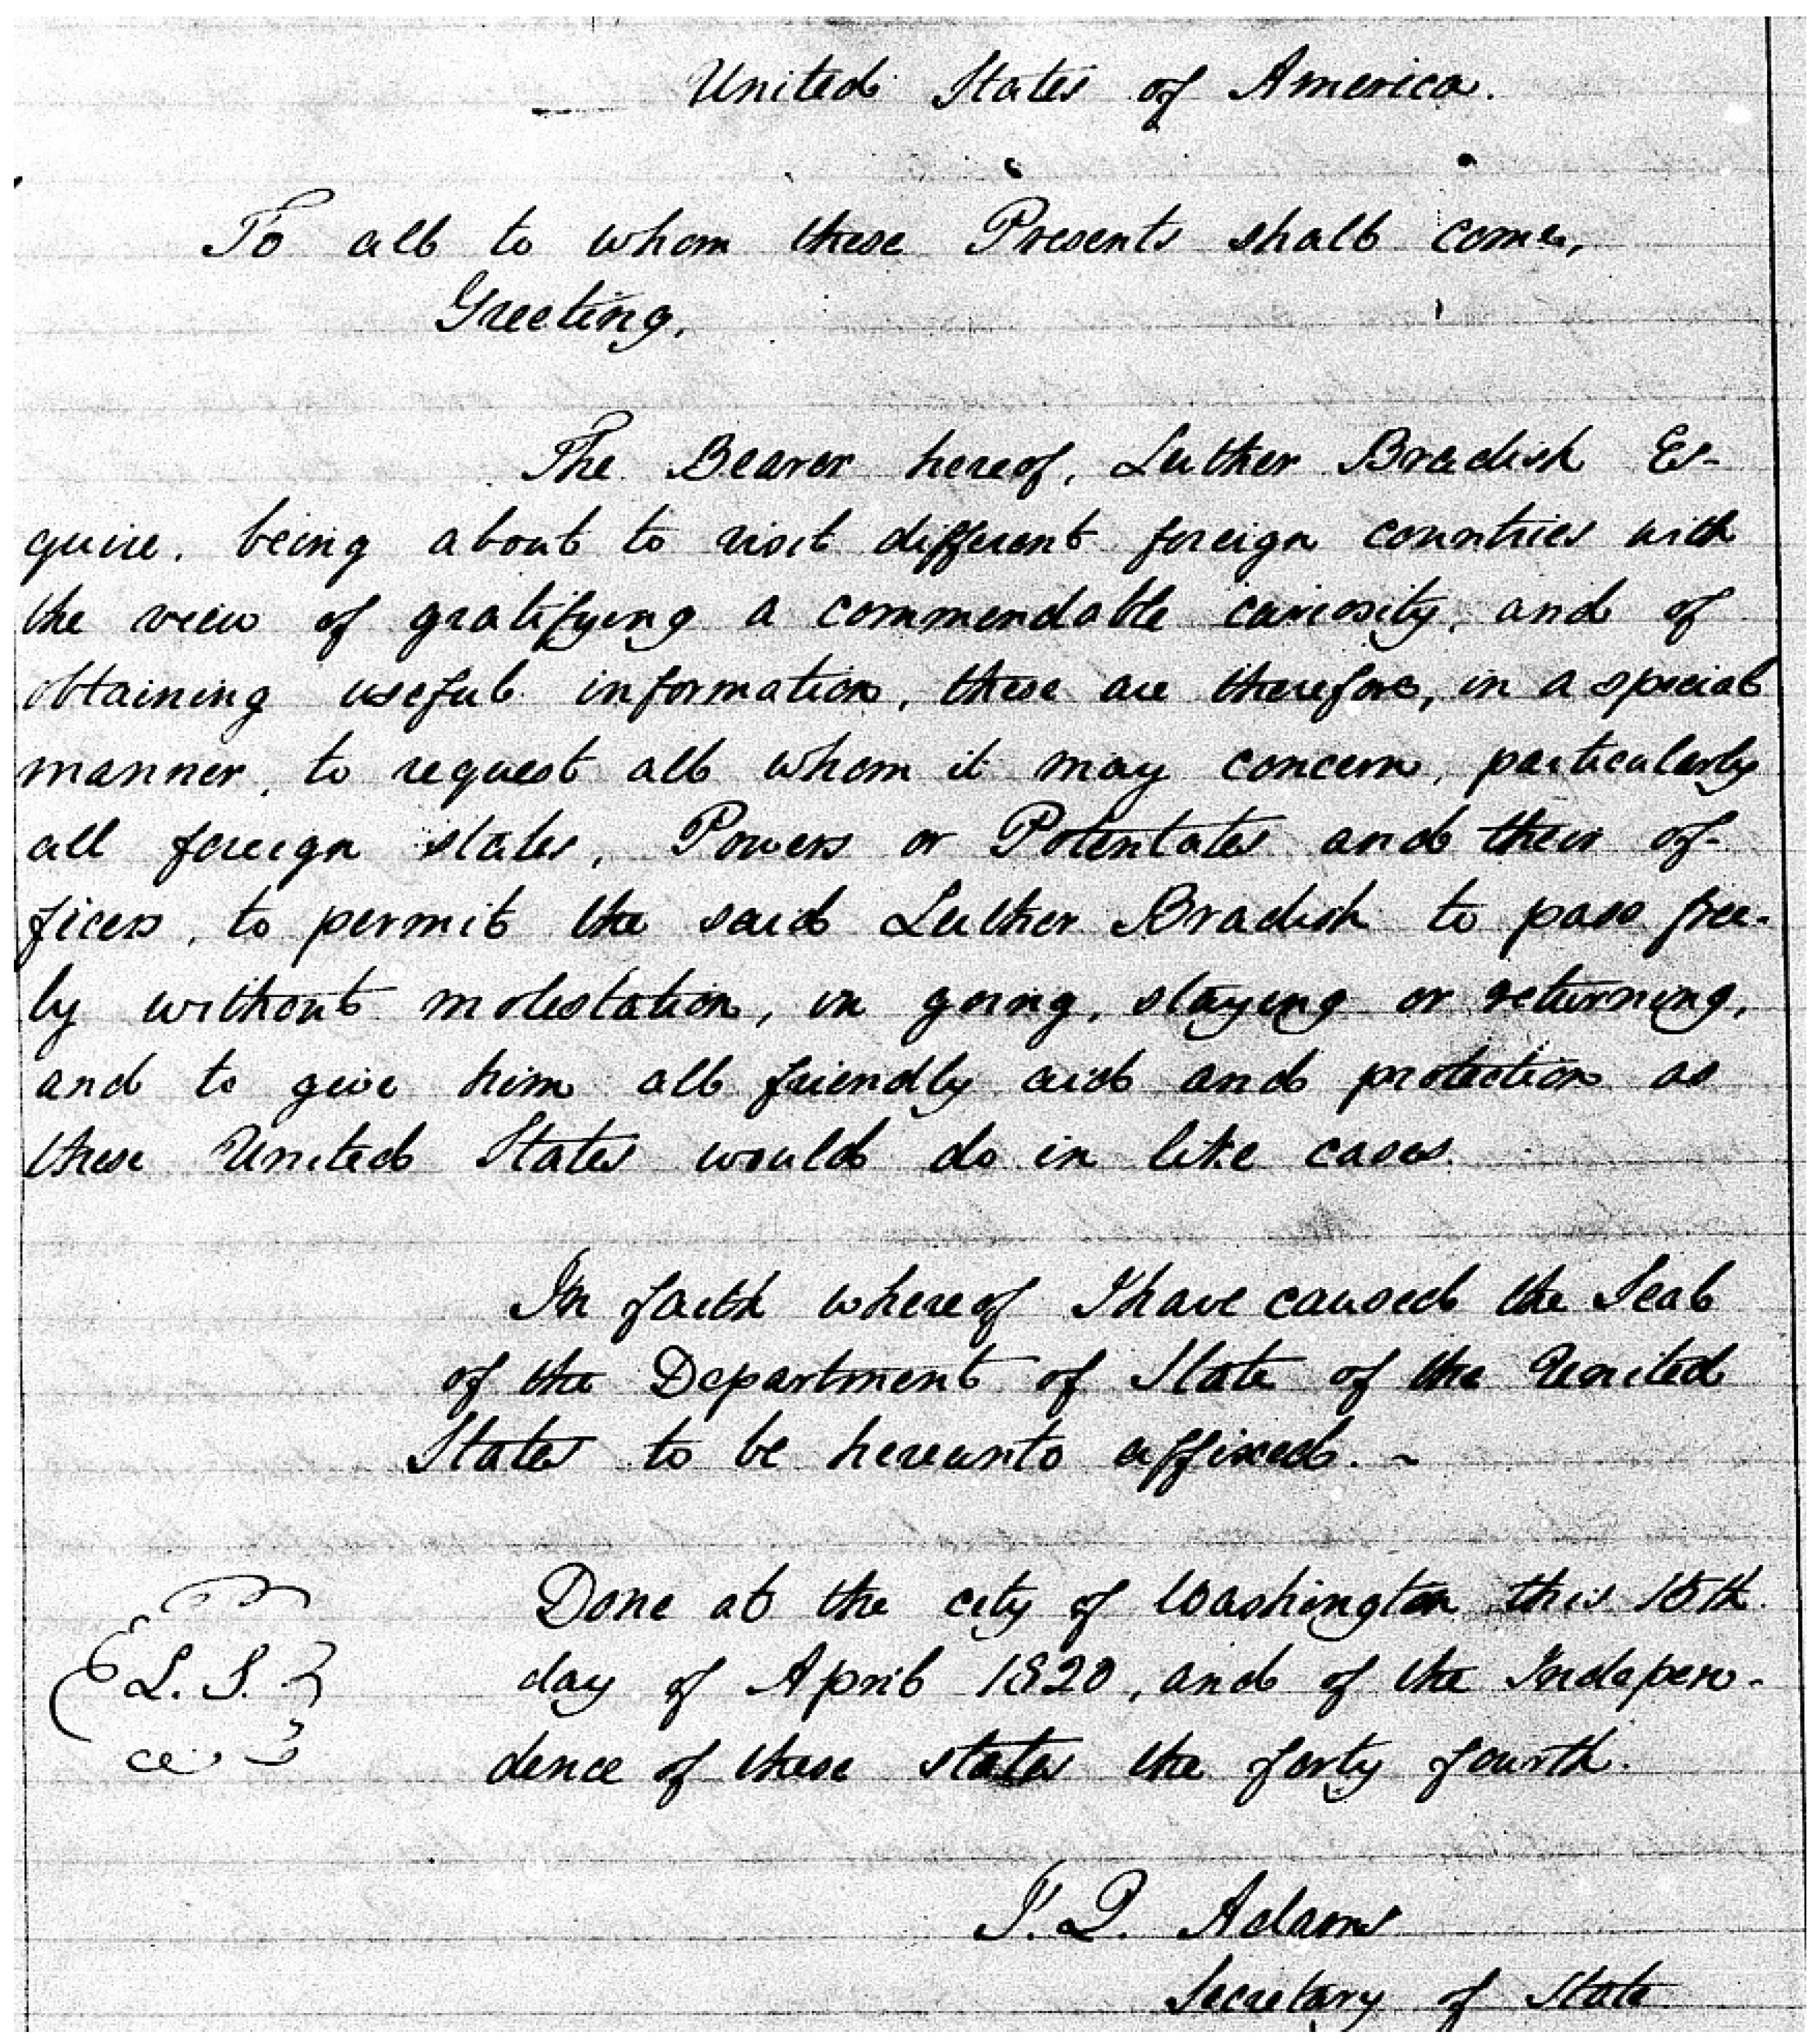 United States of America.
To all to whom these Presents shall come,
Greeting,
The Bearer hereof, Luther Bradish Es-
quire, being about to visit different foreign countries with
the view of gratifying a commendable curiosity, and of
obtaining useful information, these are therefore, in a special
manner, to request all whom it may concern, particularly
all foreign states, Powers or Potentates and their of-
ficers, to permit the said Luther Bradish to pass free-
ly without molestation, in going, staying or returning,
and to give him all friendly aid and protection as
these United States would do in like cases.
In faith whereof I have caused the Seal
of the Department of State of the United
States to be hereunto affixed. ~
Done at the city of Washington this 15th
L. S.
day of April 1820, and of the Indepen-
dence of these states the forty fourth.
J. Q. Adams
Secretary of State